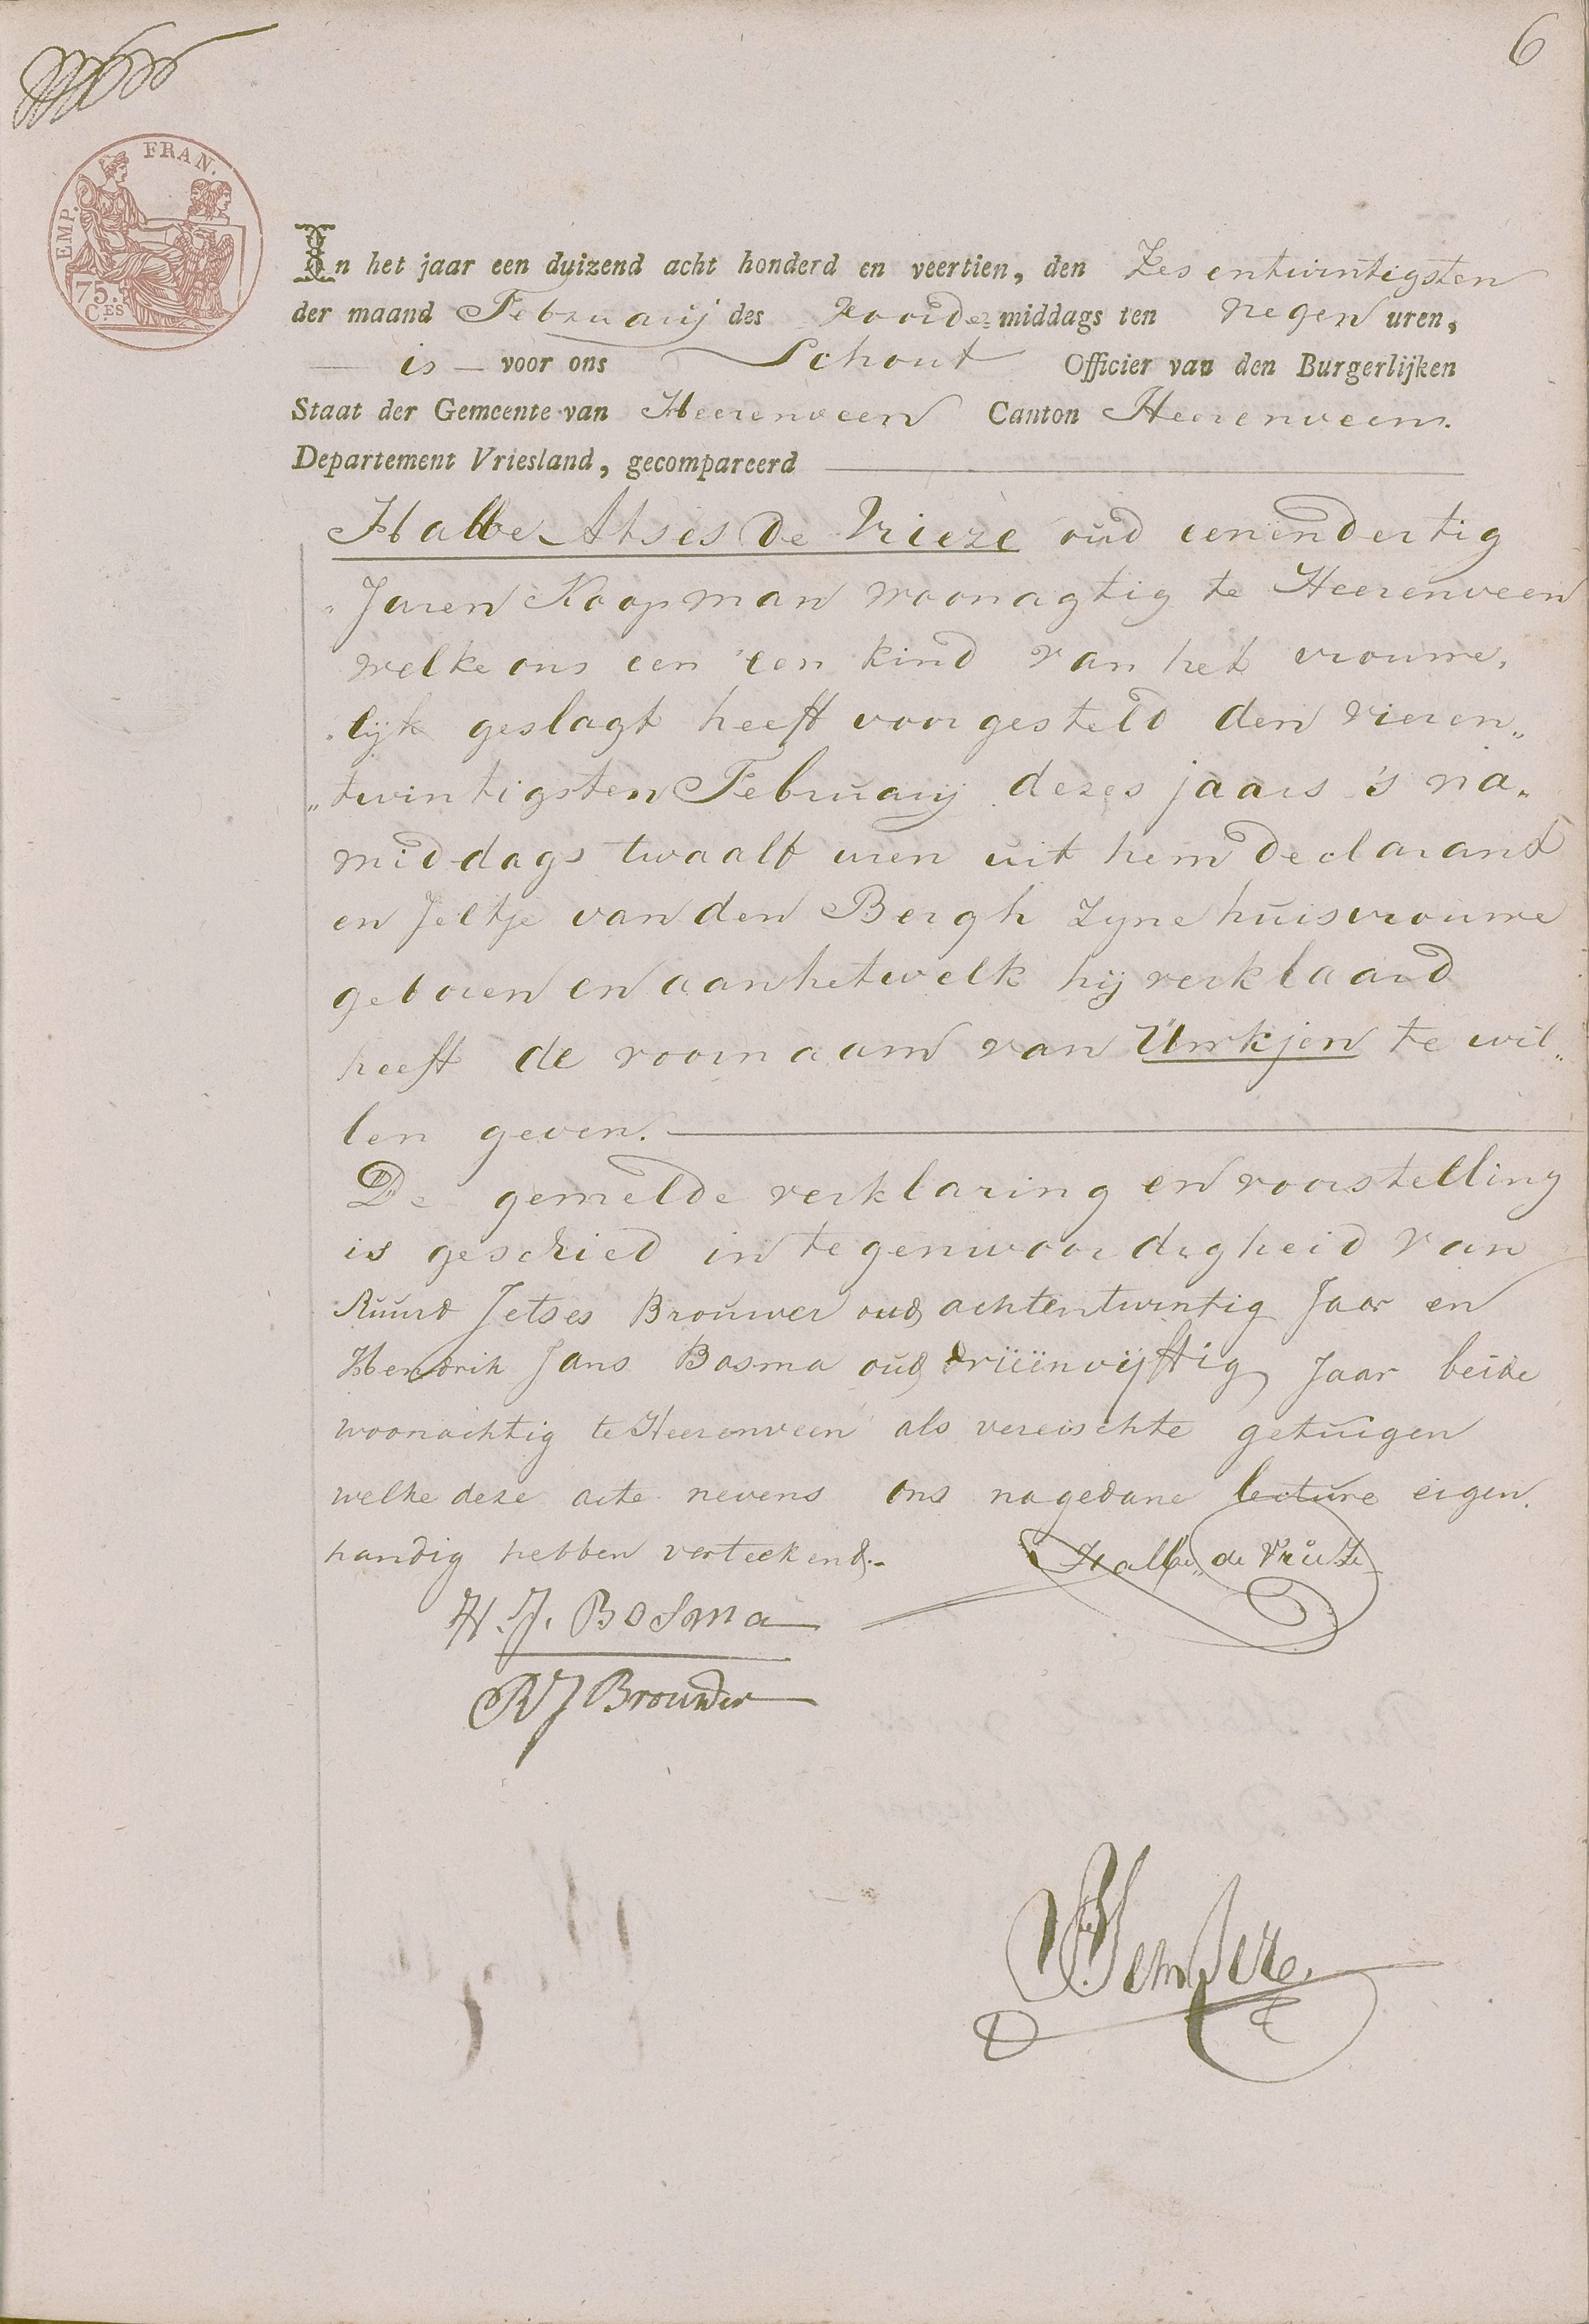 6
EMP. FRAN.
75. C.ES
In het jaar een duizend acht honderd en veertien, den Zesentwintigsten
der maand Februarij des voorde middags ten negen uren,
is voor ons Schout Officier van den Burgerlijken
Staat der Gemeente van Heerenveen Canton Heerenveen.
Departement Vriesland, gecompareerd
Halbe Atses de Vrieze oud eenendertig
Jaren Koopman woonagtig te Heerenveen
welke ons een een kind van het vrouwe„
„lijk geslagt heeft voorgesteld den vieren„
„twintigsten Februarij dezes jaars 's na„
middags twaalf uren uit hem Declarant
en Jeltje van den Bergh Zyne huisvrouwe
geboren en aan hetwelk hij verklaard
heeft de voornaam van te wil„
len geven.
De gemelde verklaring en voorstelling
is geschied in tegenwoordigheid van
Ruurd Jetses Brouwer oud achtentwintig Jaar en
Hendrik Jans Bosma oud driëenvijftig Jaar beide
woonachtig te Heerenveen als vereischte getuigen
welke deze acte nevens ons nagedane lecture eigen
handig hebben verteekend.-
Halbe de Vrieze
H. J. Bosma
R J Brouwer